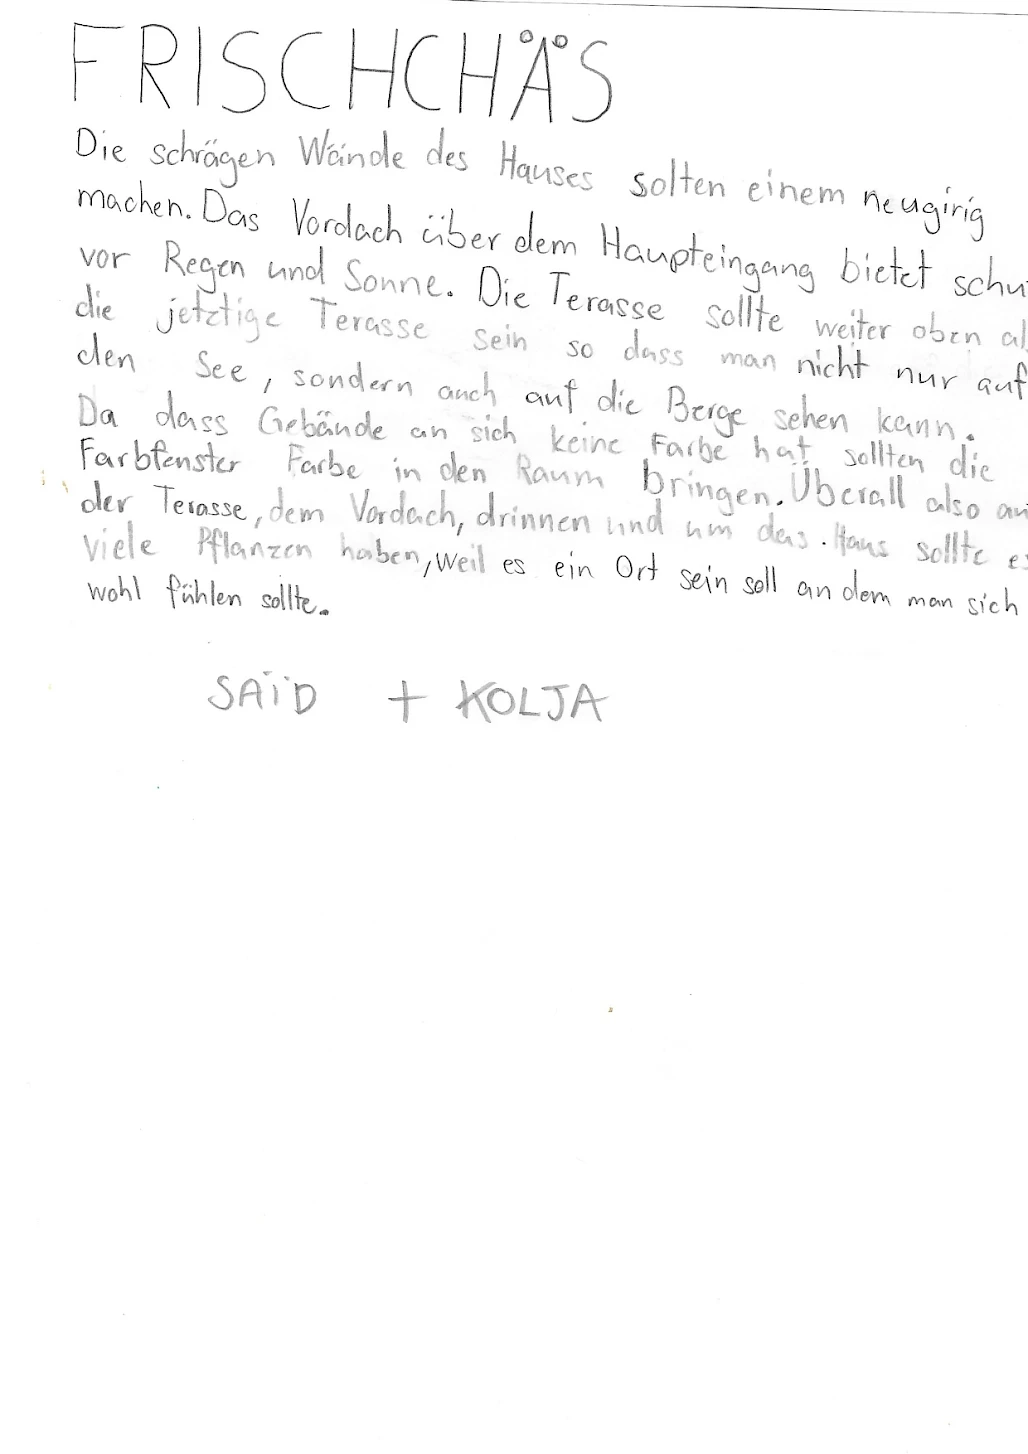 FRISCHCHÄS
Die schrägen Wände des Hauses solten einem neugirig
machen. Das Vordach über dem Haupteingang bietet schu
vor Regen und Sonne. Die Terasse sollte weiter oben al
die jetztige Terasse sein so dass man nicht nur auf
den See, sondern auch auf die Berge sehen kann.
Da dass Gebäude an sich keine Farbe hat sollten die
Farbfenster Farbe in den Raum bringen. Überall also au
der Terasse, dem Vordach, drinnen und um das Haus sollte es
viele Pflanzen haben, weil es ein Ort sein soll an dem man sich
wohl fühlen sollte.
SAÏD + KOLJA